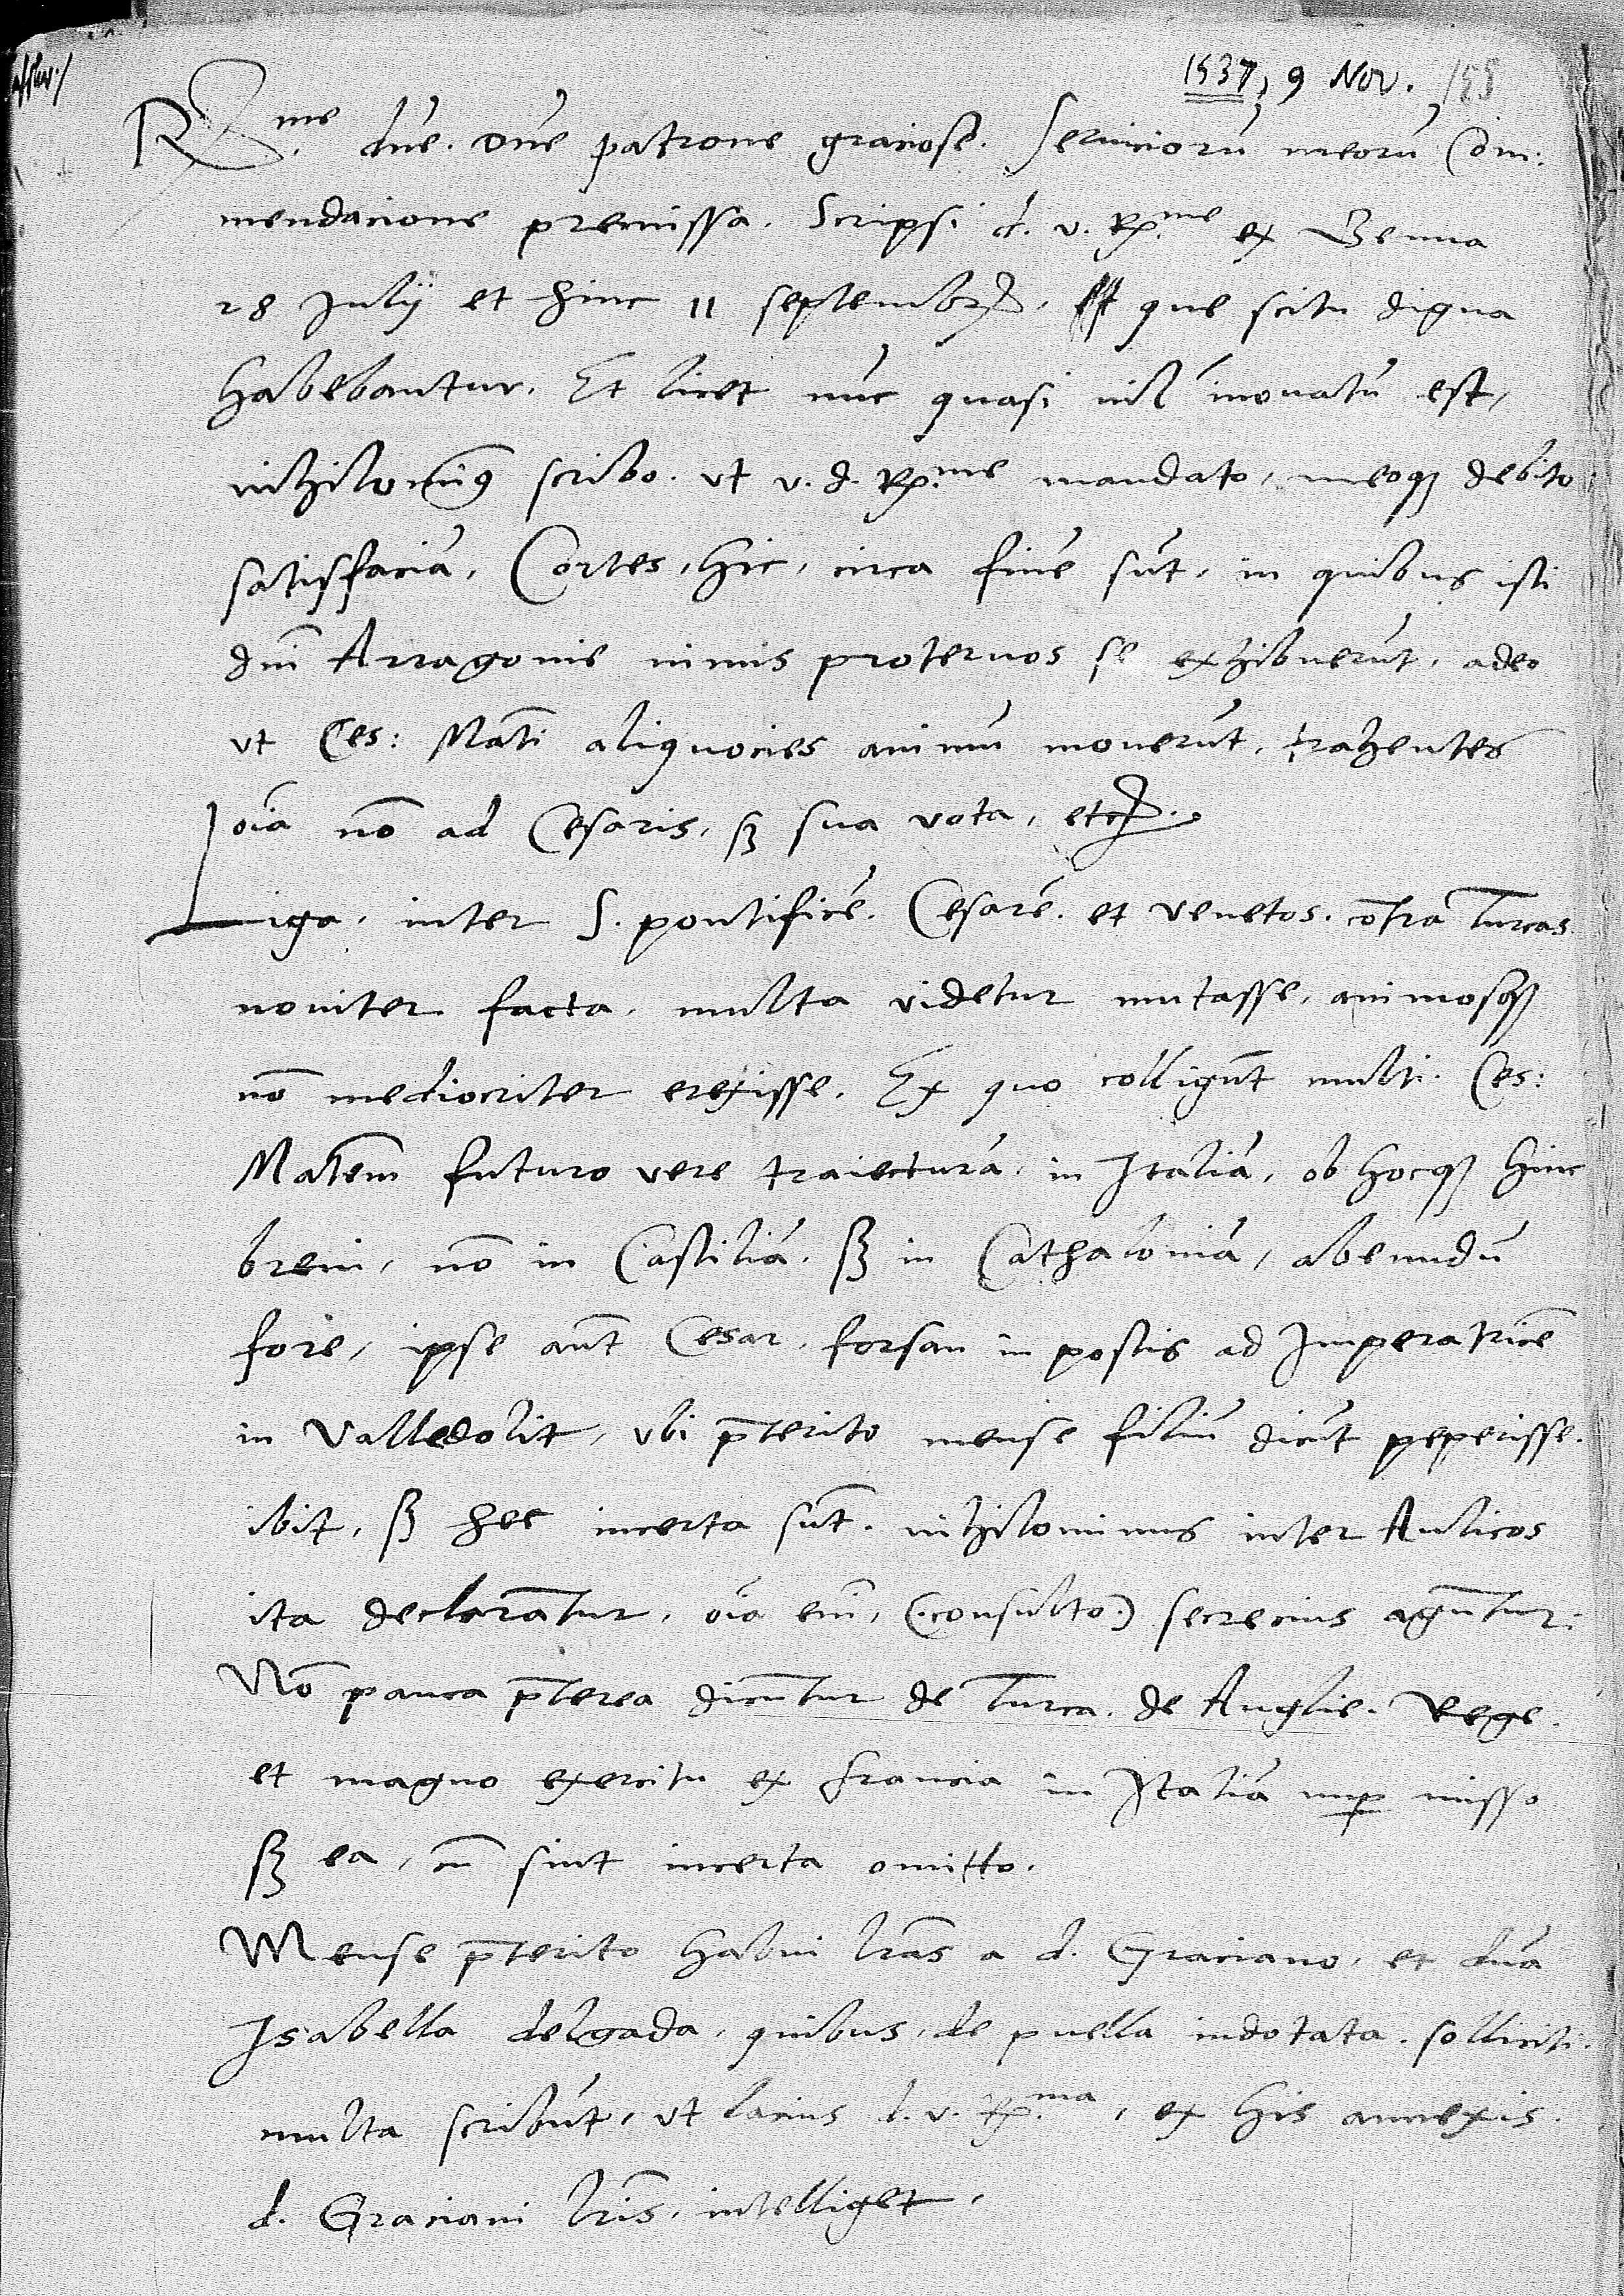 1537, 9 Nov. 155
R.me dne. dne patrone graciose. Serviciorũ meorũ Com:
mendacione premissa. Scripsi d. v. R.me ex Genua
28 Julij et hinc 11 septembr. que scitu digna
habebantur. Et licet nũc quasi nil inovatũ est,
nihilominꝰ scribo. ut v. d. R.me mandato, meoqꝫ debito
satisfaciã. Cortes, hic, circa finẽ sũt, in quibus isti
dni Arragonie nimis protervos se exhibuerũt, adeo
ut Ces: Mati aliquocies animũ moverũt, trahentes
oĩa nõ ad Cesaris, sꝫ sua vota, etc.
Liga, inter S. pontificẽ. Cesarẽ. et Venetos. cõtra Turcas
noviter facta, multa videtur mutasse, animosqꝫ
nõ mediocriter erexisse. Ex quo colligũt multi. Ces:
Matem futuro vere traiecturã, in Italiã, ob hocqꝫ hinc
brevi, nõ in Castiliã. sꝫ in Cathaloniã, abeundũ
fore, ipse aut Cesar, forsan in postis ad Imperatricẽ
in Valledolit, ubi pterito mense filiũ dicũt peperisse.
ibit, sꝫ hec incerta sũt. nihilominus inter Aulicos
ita declarãtur, oĩa eni, (.consulto.) secrecius agũtur.
Nõ pauca pterea dicũtur de Turca, de Anglie. Rege.
et magno exercitu ex Francia in Italiã nup misso
sꝫ ea, cũ sint incerta omitto.
Mense pterito habui lras a d. Graciano, et dna
Isabella delgada, quibus, de puella indotata. solliciti.
multa scribũt, ut lacius d. v. R.ma, ex his annexis.
d. Graciani lris, intelliget,